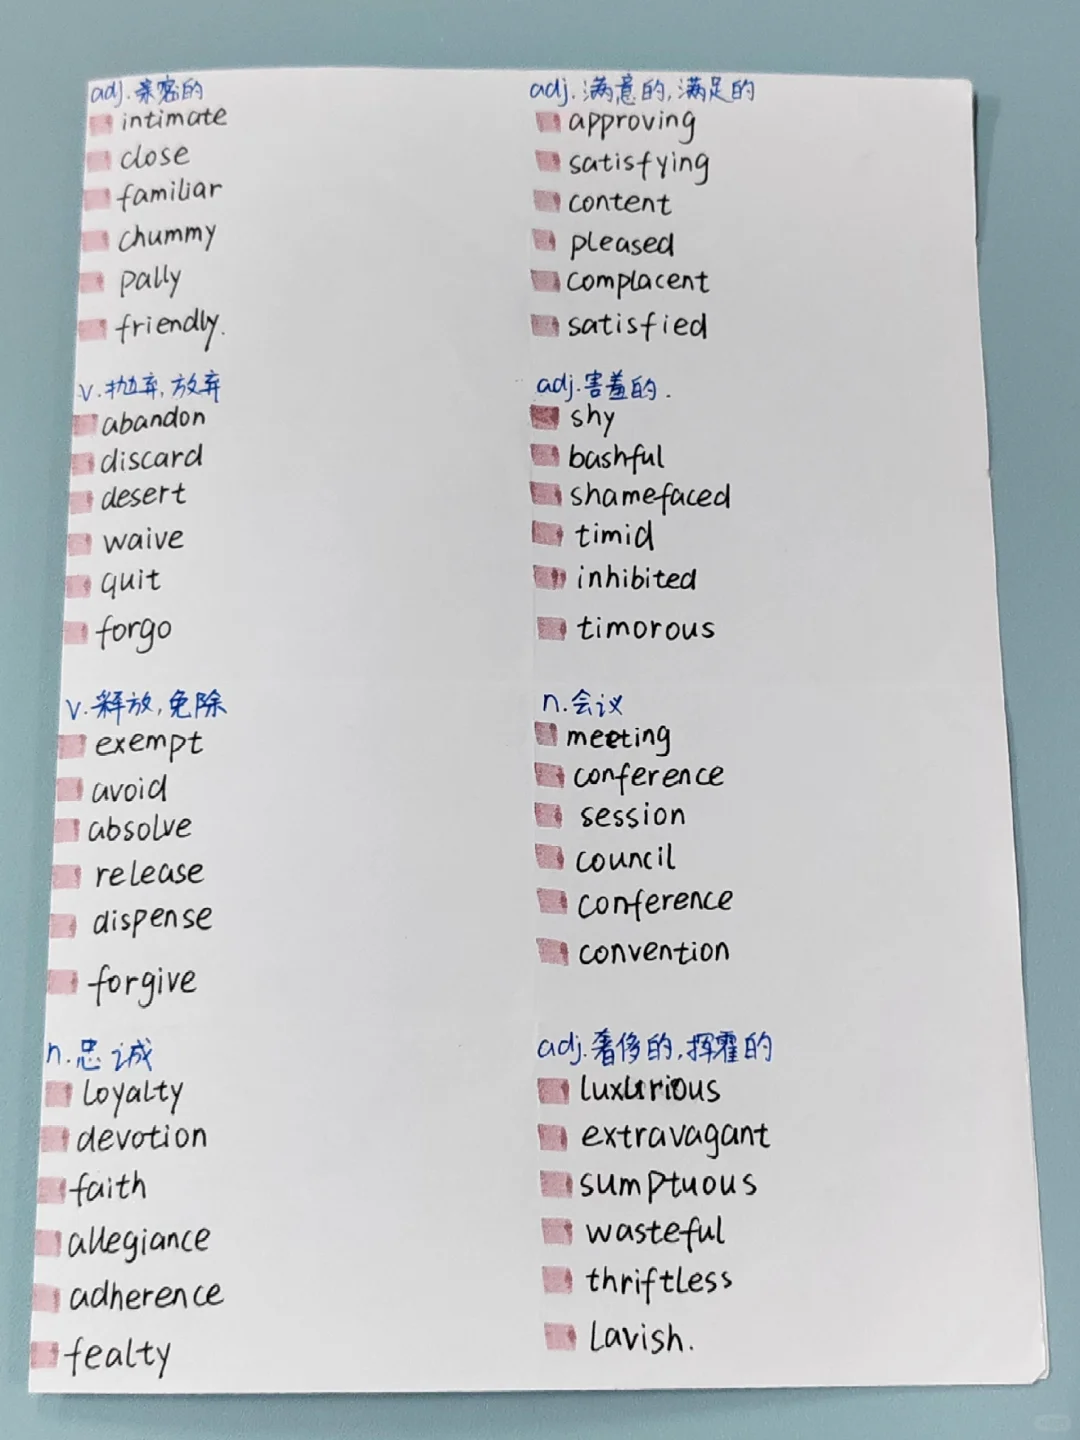 adj.亲密的
intimate
close
familiar
chummy
pally
friendly.
v.抛弃,放弃
abandon
discard
desert
waive
quit
forgo
v.释放,免除
exempt
avoid
absolve
release
dispense
forgive
n.忠诚
loyalty
devotion
faith
allegiance
adherence
fealty
adj.满意的,满足的
approving
satisfying
content
pleased
complacent
satisfied
adj.害羞的.
shy
bashful
shamefaced
timid
inhibited
timorous
n.会议
meeting
conference
session
council
conference
convention
adj.奢侈的,挥霍的
luxurious
extravagant
sumptuous
wasteful
thriftless
lavish.